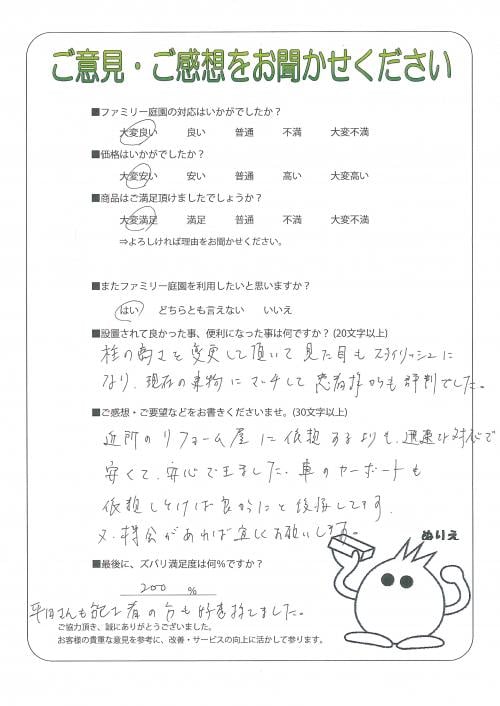 ご意見・ご感想をお聞かせください
■ファミリー庭園の対応はいかがでしたか？
大変良い 良い 普通 不満 大変不満
■価格はいかがでしたか？
大変安い 安い 普通 高い 大変高い
■商品はご満足頂けましたでしょうか？
大変満足 満足 普通 不満 大変不満
⇒よろしければ理由をお聞かせください。
■またファミリー庭園を利用したいと思いますか？
はい どちらとも言えない いいえ
■設置されて良かった事、便利になった事は何ですか？(20文字以上)
柱の高さを変更して頂いて見た目もスタイリッシュに
なり、現在の建物にマッチして患者様からも評判でした。
■ご感想・ご要望などをお書きくださいませ。(30文字以上)
近所のリフォーム屋に依頼するよりも、迅速な対応で
安くて、安心できました。車のカーポートも
依頼しとけば良かったと後悔してます。
又、機会があれば宜しくお願いします。
ぬりえ
■最後に、ズバリ満足度は何%ですか？
200 %
平田さんも施工者の方も好感持てました。
ご協力頂き、誠にありがとうございました。
お客様の貴重な意見を参考に、改善・サービスの向上に活かして参ります。